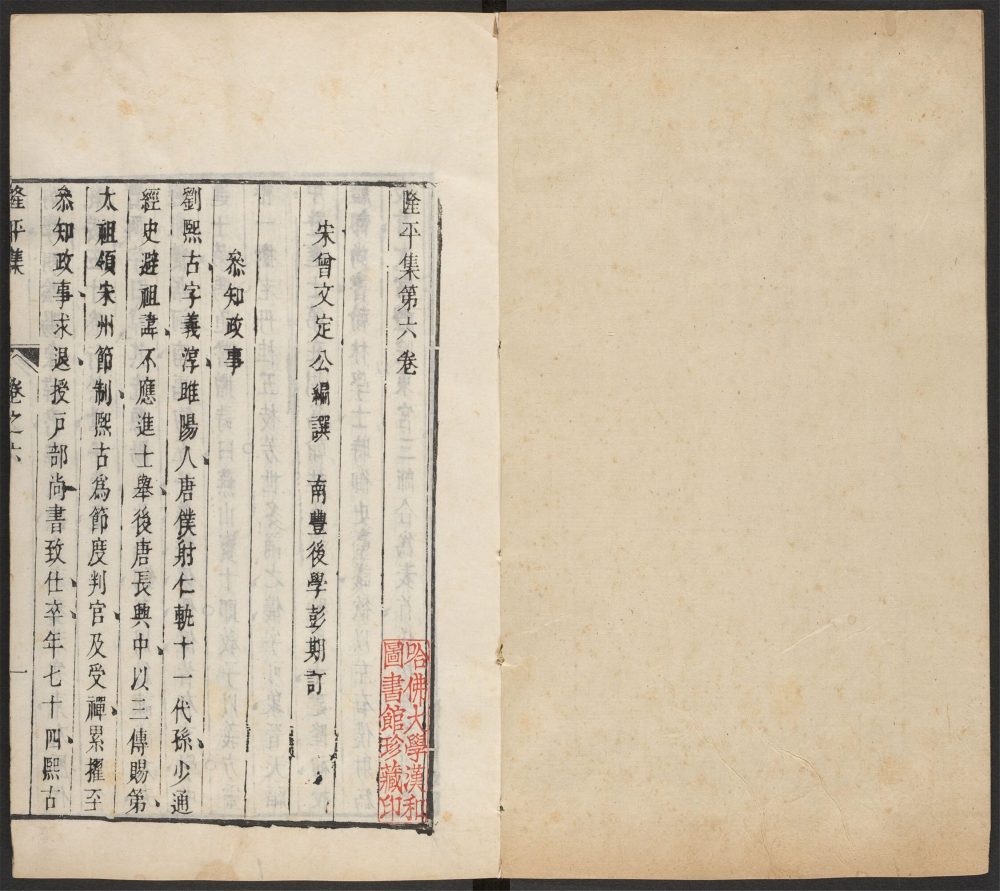 隆平集第六卷
宋曾文定公編譔　南豐後學彭期訂
叅知政事
劉熙古字義淳睢陽人唐僕射仁軌十一代孫少通
經史避祖諱不應進士舉後唐長興中以三傳賜第
太祖領宋州節制熙古爲節度判官及受禪累擢至
叅知政事求退授戸部尚書致仕卒年七十四熙古
隆平集　卷之六　一
哈佛大學漢和
圖書館珍藏印